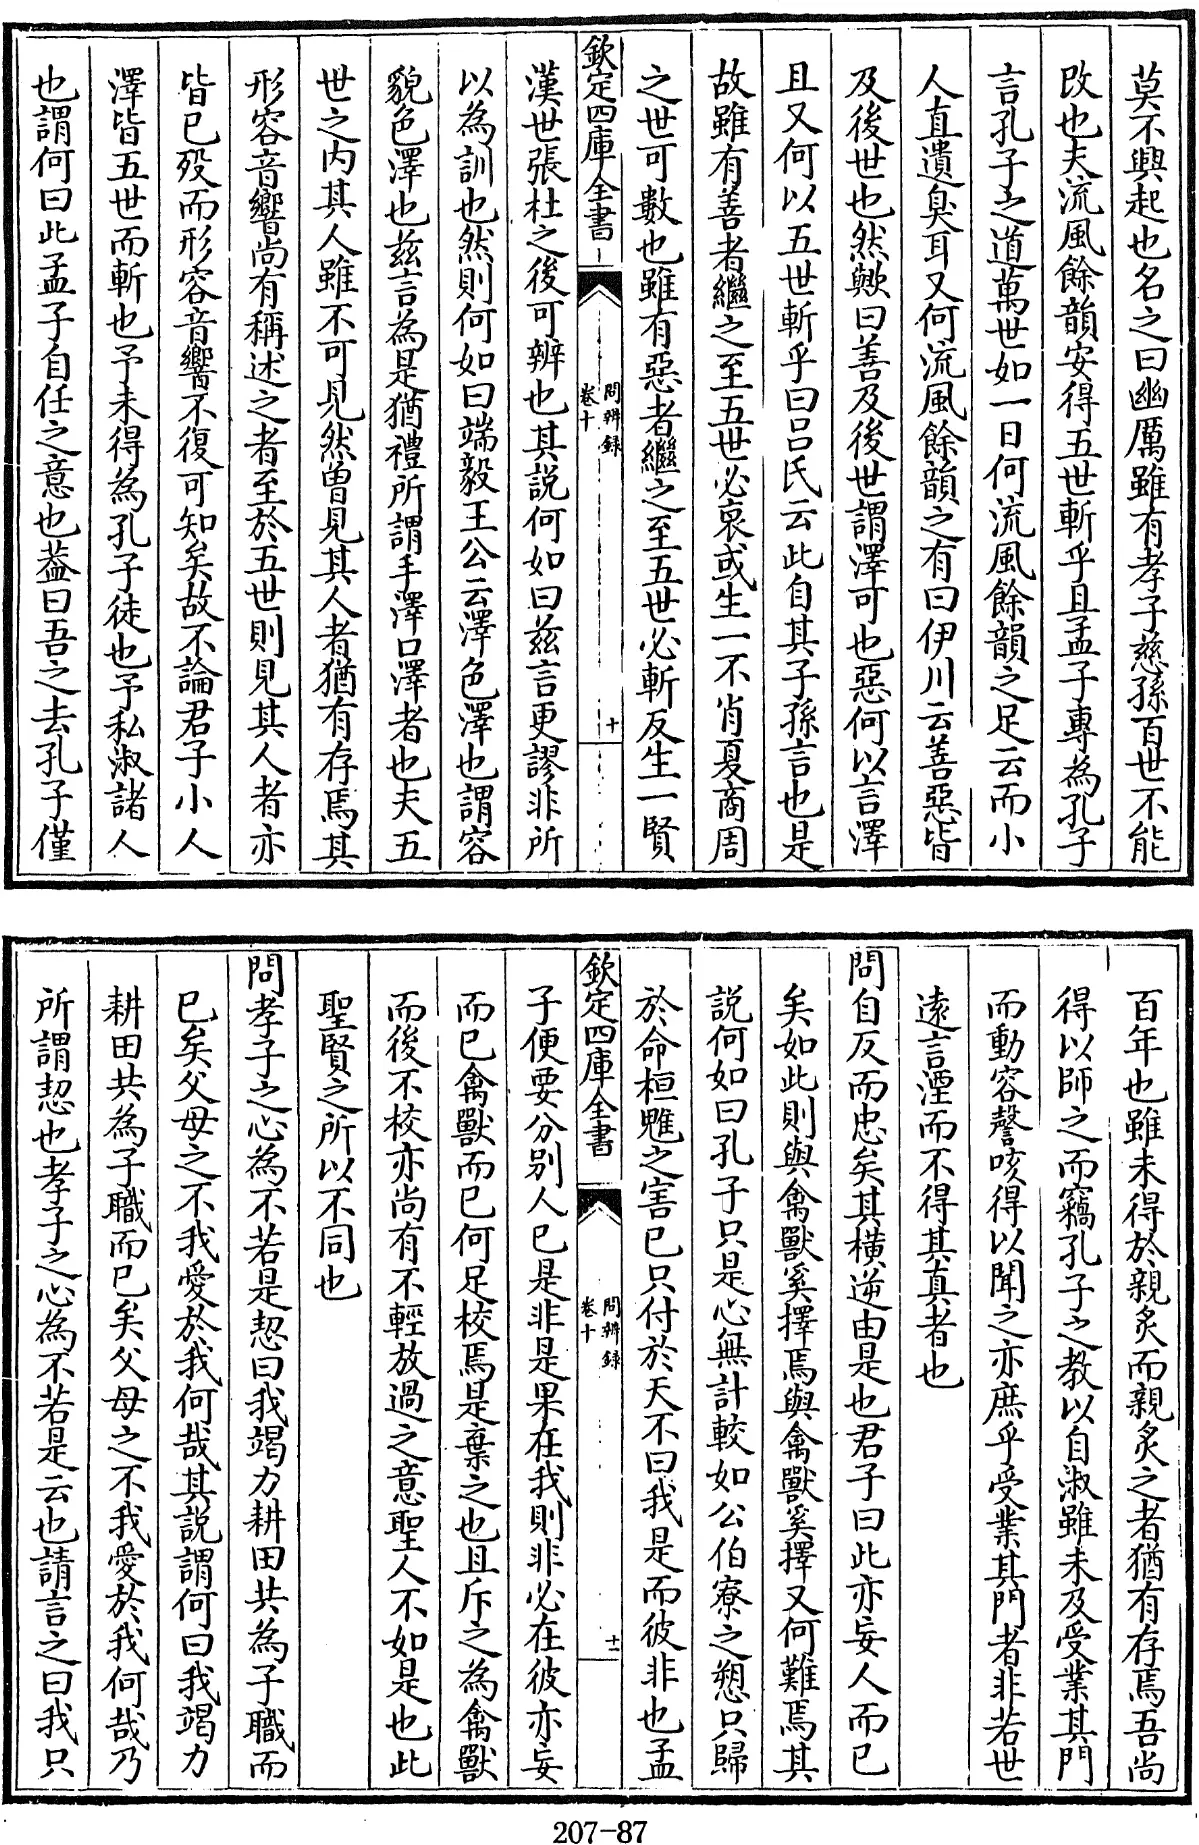 莫不興起也名之曰幽厲雖有孝子慈孫百世不能
改也夫流風餘韻安得五世斬乎且孟子專為孔子
言孔子之道萬世如一日何流風餘韻之足云而小
人直遺臭耳又何流風餘韻之有曰伊川云善惡皆
及後世也然歟曰善及後世謂澤可也惡何以言澤
且又何以五世斬乎曰呂氏云此自其子孫言也是
故雖有善者繼之至五世必衰或生一不肖夏商周
之世可數也雖有惡者繼之至五世必斬反生一賢
欽定四庫全書
問辨錄
卷十
十
漢世張杜之後可辨也其説何如曰兹言更謬非所
以為訓也然則何如曰端毅王公云澤色澤也謂容
貌色澤也兹言為是猶禮所謂手澤口澤者也夫五
世之内其人雖不可見然曾見其人者猶有存焉其
形容音響尚有稱述之者至於五世則見其人者亦
皆已歿而形容音響不復可知矣故不論君子小人
澤皆五世而斬也予未得為孔子徒也予私淑諸人
也謂何曰此孟子自任之意也葢曰吾之去孔子僅
百年也雖未得於親炙而親炙之者猶有存焉吾尚
得以師之而竊孔子之教以自淑雖未及受業其門
而動容謦咳得以聞之亦庶乎受業其門者非若世
遠言湮而不得其真者也
問自反而忠矣其橫逆由是也君子曰此亦妄人而已
矣如此則與禽獸奚擇焉與禽獸奚擇又何難焉其
説何如曰孔子只是心無計較如公伯寮之愬只歸
於命桓魋之害已只付於天不曰我是而彼非也孟
欽定四庫全書
問辨錄
卷十
十一
子便要分别人已是非是果在我則非必在彼亦妄
而已禽獸而已何足校焉是棄之也且斥之為禽獸
而後不校亦尚有不輕放過之意聖人不如是也此
聖賢之所以不同也
問孝子之心為不若是恝曰我竭力耕田共為子職而
已矣父母之不我愛於我何哉其説謂何曰我竭力
耕田共為子職而已矣父母之不我愛於我何哉乃
所謂恝也孝子之心為不若是云也請言之曰我只
207-87